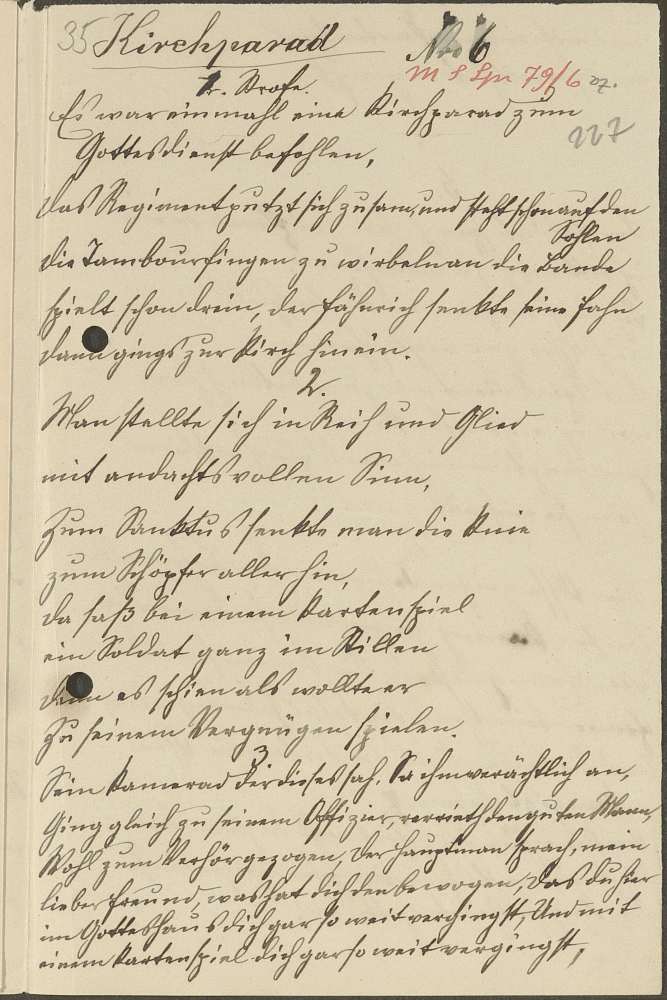 35 Kirchparad No 6
M S Spr 79/6 27.
1. Strofe.
227
Es war einmahl eine Kirchparad zum
Gottesdienst befohlen,
das Regiment putzt sich zusam, und steht schon auf den
Sohlen
die Tambour fingen zu wirbeln an die Bande
spielt schon drein, der Fähnrich senkte seine Fahn
dann gings zur Kirch hinein.
2.
Man stellte sich in Reih und Glied
mit andachtsvollen Sinn,
zum Sanktus senkte man die Knie
zum Schöpfer aller hin,
da saß bei einem Kartenspiel
ein Soldat ganz im Stillen
denn es schien als wollte er
zu seinem Vergnügen spielen.
3
Sein Kamerad der dieses sah, Sa ihm verächtlich an,
Ging gleich zu seinem Offizier, verrieth den guten Mann,
Wohl zum Verhör gezogen, der Hauptman sprach, mein
lieber Freund, was hat dich den bewogen, das du hier
im Gotteshaus dich gar so weit vergingst, Und mit
einem Kartenspiel dich gar so weit vergingst,